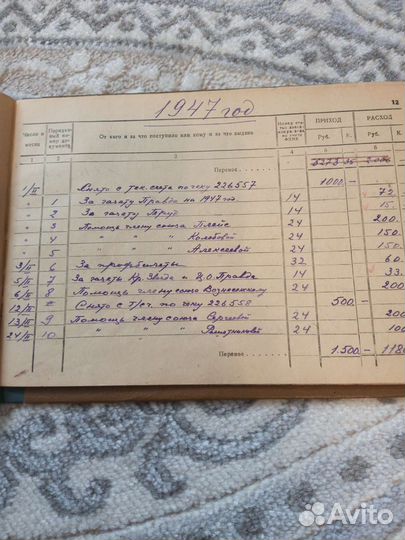 12
1947 год
Число и месяц Порядковый номер документа От кого и за что поступило или кому и за что выдано ПРИХОД Руб. К. РАСХОД Руб. К.
1 2 3 4 5 6
Перенос
1/II Снято с тек. счета по чеку 226557 1000 -
" 1 За газету Правда на 1947 год 14 72
" 2 За газету Труд 14 15.
" 3 Помощь члену союза Плейс 24 200.
" 4 " " " Колобовой 24 150.
" 5 " " " Алексеевой 24 150.
3/II 6 За профбилеты 32 60.
5/II 7 За газеты Кр. Звезда и Ц.О Правда 14 33.
6/II 8 Помощь члену союза Вознесенскому 24 200
12/II Снято с Т/сч. по чеку 226558 500 -
13/II 9 Помощь члену союза Сергеевой 24 200
24/II 10 " " " 24 100
Перенос 1.500 - 1180
Avito